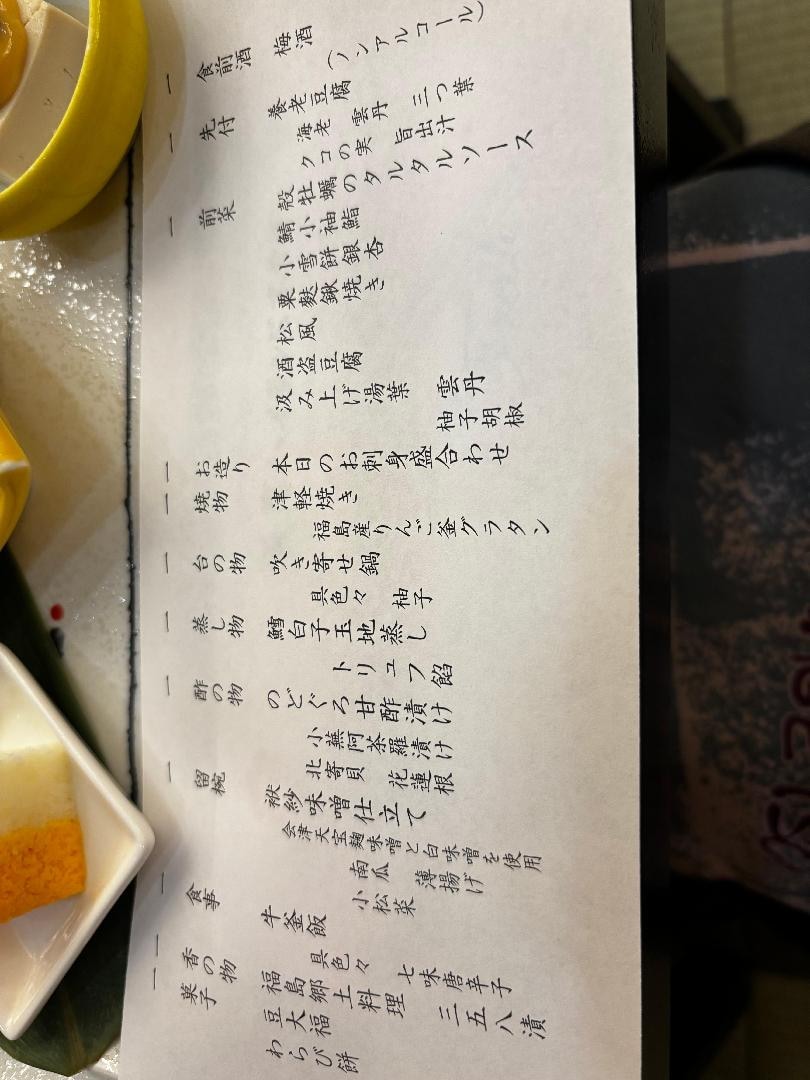 一 食前酒 梅酒(ノンアルコール)
一 先付 養老豆腐
海老 雲丹 三つ葉
クコの実 旨出汁
一 前菜 殻牡蠣のタルタルソース
鯖小袖鮨
小雪餅銀杏
粟麩鍬焼き
松風
酒盗豆腐
汲み上げ湯葉 雲丹
柚子胡椒
一 お造り 本日のお刺身盛合わせ
一 焼物 津軽焼き
福島産りんご釜グラタン
一 台の物 吹き寄せ鍋
具色々 柚子
一 蒸し物 鱈白子玉地蒸し
トリュフ餡
一 酢の物 のどぐろ甘酢漬け
小蕪阿茶羅漬け
北寄貝 花蓮根
一 留椀 袱紗味噌仕立て
会津天宝麹味噌と白味噌を使用
南瓜 薄揚げ
小松菜
一 食事 牛釜飯
具色々
一 香の物 福島郷土料理 七味唐辛子
三五八漬
一 菓子 豆大福
わらび餅